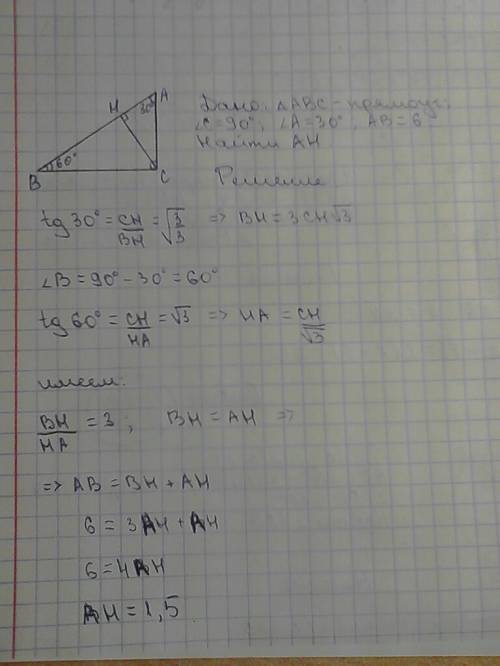 A
H
30°
60°
B
C
Дано: ΔABC – прямоуг.;
∠C = 90°, ∠A = 30°, AB = 6
Найти AH
Решение
tg 30° = CH/BH = √3/3 => BH = 3CH√3
∠B = 90° – 30° = 60°
tg 60° = CH/HA = √3 => HA = CH/√3
имеем:
BH/HA = 3; BH = AH =>
=> AB = BH + AH
6 = 3AH + AH
6 = 4AH
AH = 1,5